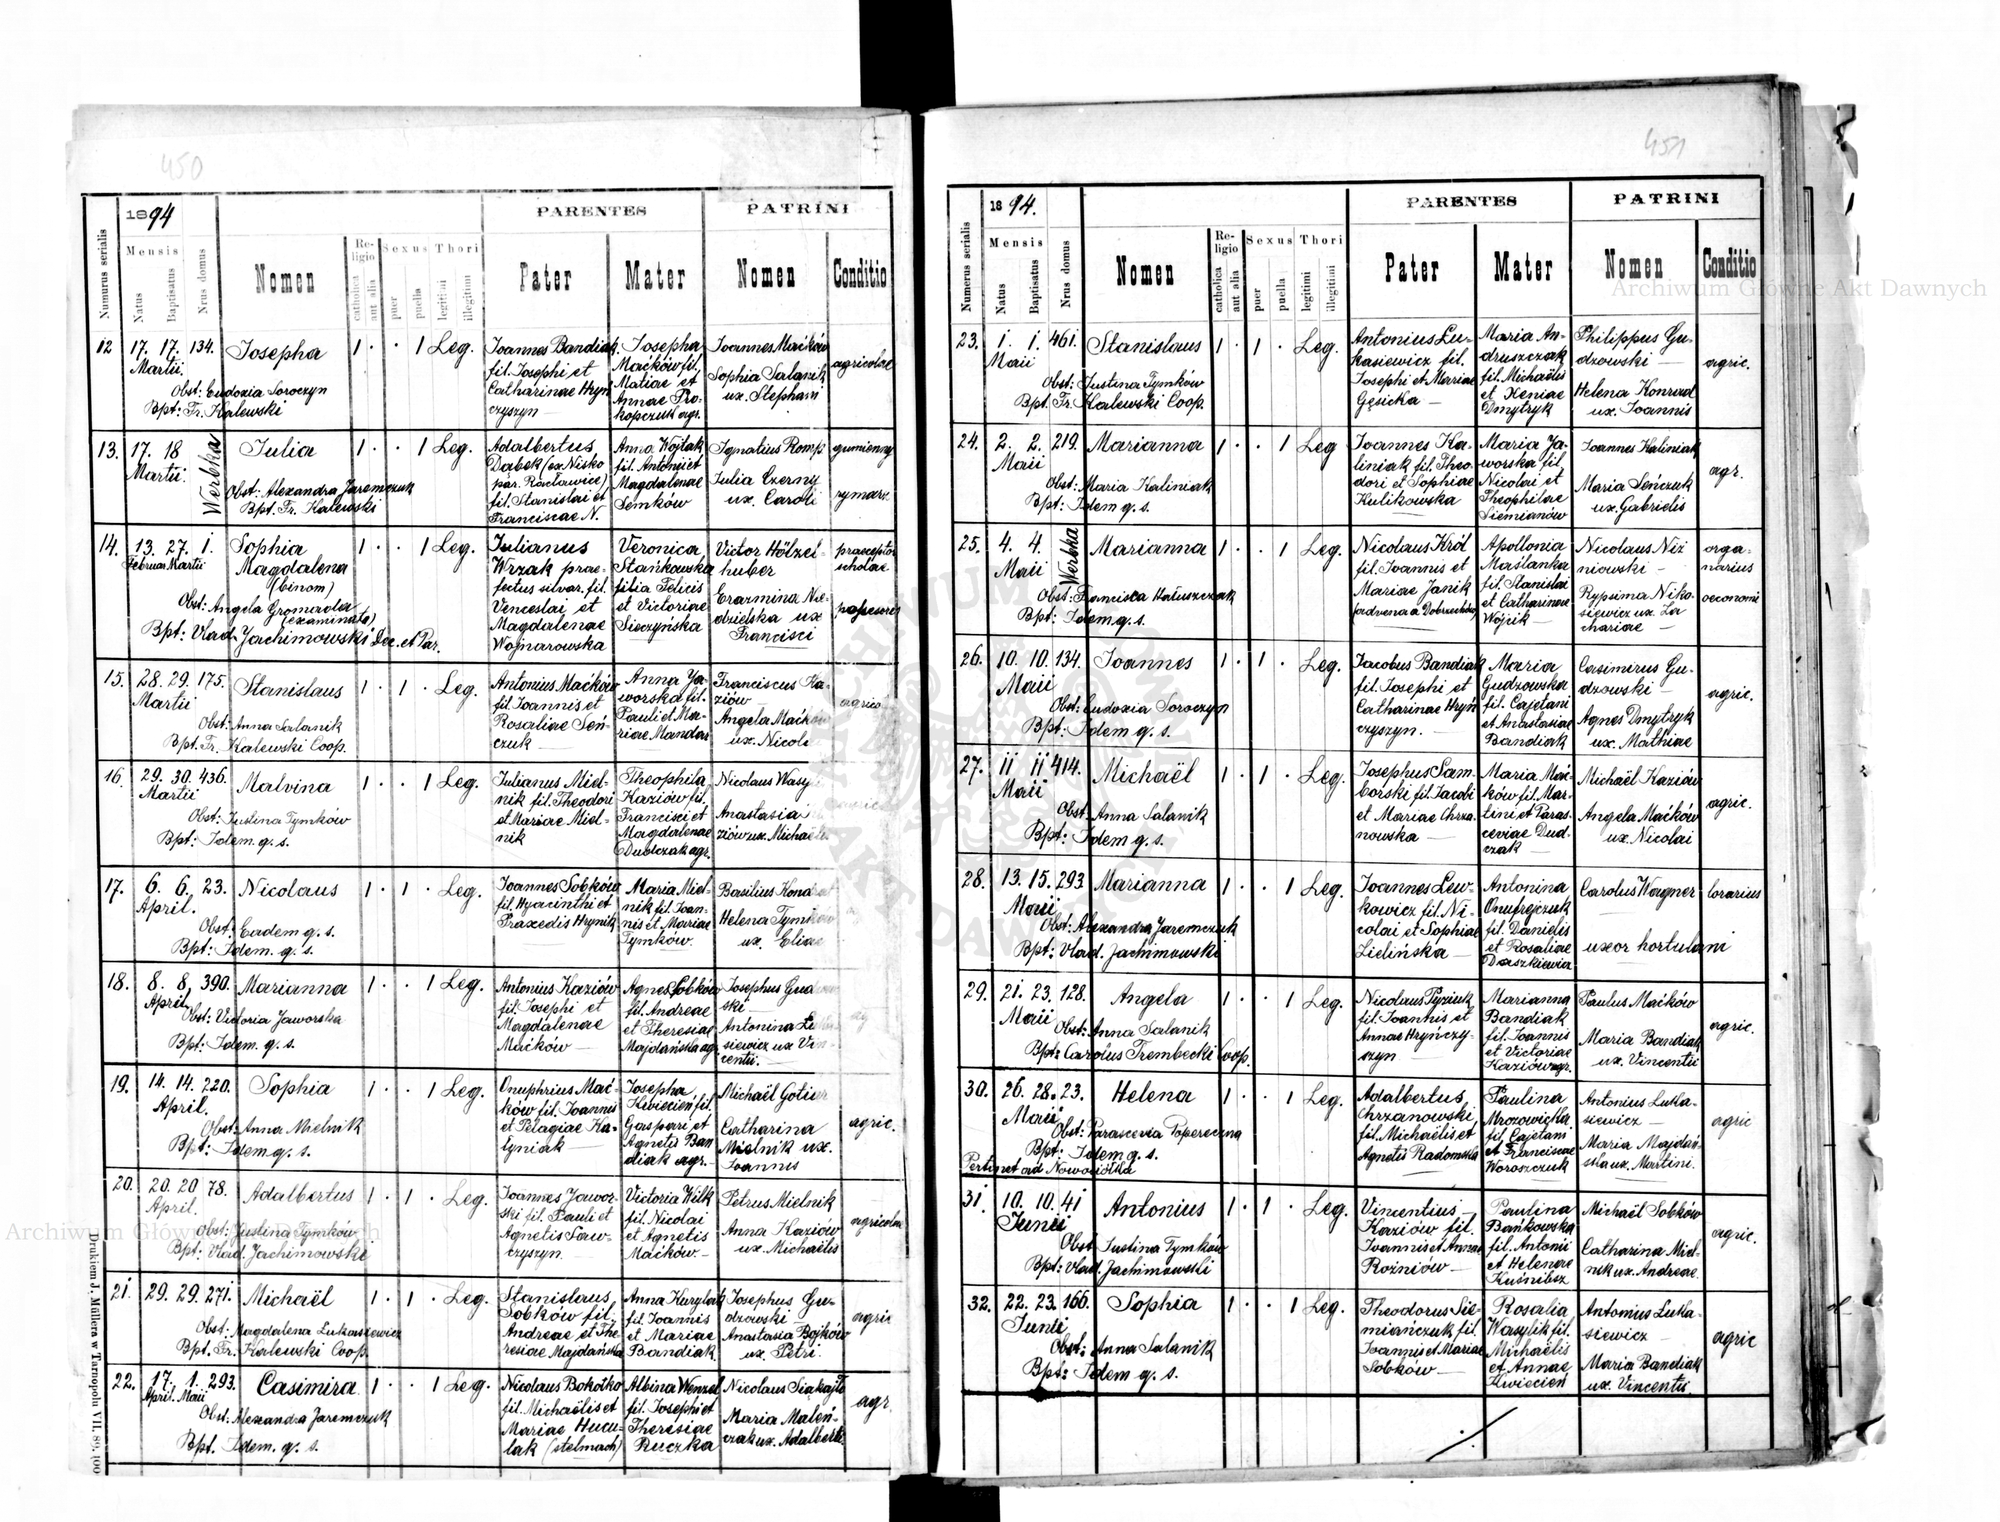 450
1894
PARENTES
PATRINI
Numurus serialis
Mensis
Natus
Baptisatus
Nrus domus
Nomen
Religio
catholica
aut alia
Sexus
puer
puella
Thori
legitimi
illegitimi
Pater
Mater
Nomen
Conditio
12 17. 17. 134. Josepha 1 · · 1 Leg.
Martii
Obst: Eudoxia Soroczyn
Bpt: Fr. Kalewski
Joannes Bandiak
fil. Josephi et
Catharinae Hryń
czyszyn —
Josepha
Maćków fil.
Matiae et
Annae Pro-
kopczuk agr.
Joannes Maćków
Sophia Salanik
ux. Stephani
agricolae
13. 17. 18 Werbka Julia 1 · · 1 Leg.
Martii
Obst: Alexandra Jaremczuk
Bpt. Fr. Kalewski
Adalbertus
Dąbek (ex Nisko
par. Racławice)
fil. Stanislai et
Franciscae N.
Anna Wojtak
fil. Antonii et
Magdalenae
Semków
Ignatius Romp
Julia Czerny
ux. Caroli
gumienny
rymarz
14. 13. 27. 1. Sophia 1 · · 1 Leg.
Februar. Martii
Magdalena
(binom)
Obst: Angela Gromada
(examinata)
Bpt: Vlad. Jachimowski Dec. et Par.
Julianus
Wrzak prae-
fectus silvar. fil.
Venceslai et
Magdalenae
Wojnarowska
Veronica
Stańkowska
filia Felicis
et Victoriae
Sieczyńska
Victor Hölzel-
huber
Erazmina Nie-
dzielska ux
Francisci
praeceptor
scholae
15. 28. 29. 175. Stanislaus 1 · 1 · Leg.
Martii
Obst: Anna Salanik
Bpt. Fr. Kalewski Coop.
Antonius Maćków
fil. Joannis et
Rosaliae Seń-
czuk —
Anna Ja-
worska fil.
Pauli et Ma-
riae Mandar
Franciscus Ka-
ziów
Angela Maćków
ux. Nicolai
agric
16. 29. 30. 436. Malvina 1 · · 1 Leg.
Martii
Obst: Justina Tymków
Bpt: Idem q. s.
Julianus Miel-
nik fil. Theodori
et Mariae Miel-
nik
Theophila
Kaziów fil.
Francisci et
Magdalenae
Dudczak agr.
Nicolaus Wasy
Anastasia
ziów ux. Michaelis
17. 6. 6. 23. Nicolaus 1 · 1 · Leg.
April.
Obst: Eadem q. s.
Bpt: Idem. q. s.
Joannes Sobków
fil. Hyacinthi et
Praxedis Hrynik
Maria Miel-
nik fil. Joan-
nis et Mariae
Tymków.
Basilius Kond
Helena Tymków
ux. Eliae
18. 8. 8. 390. Marianna 1 · · 1 Leg.
April
Obst: Victoria Jaworska
Bpt: Idem. q. s.
Antonius Kaziów
fil. Josephi et
Magdalenae
Maćków —
Agnes Sobków
fil. Andreae
et Theresiae
Majdańska agr.
Josephus Gudzow
ski —
Antonina Luka
siewicz ux Vin-
centii.
ag
19. 14. 14. 220. Sophia 1 · · 1 Leg.
April.
Obst: Anna Mielnik
Bpt: Idem q. s.
Onuphrius Mać-
ków fil. Joannis
et Pelagiae Ka-
łyniak —
Josepha
Kwiecień fil.
Gaspari et
Agnetis Ban
diak agr.
Michaël Gotiur
Catharina
Mielnik ux.
Joannis
agric.
20. 20. 20 78. Adalbertus 1 · 1 · Leg.
April.
Obst: Justina Tymków
Bpt: Vlad. Jachimowski
Joannes Jawor-
ski fil. Pauli et
Agnetis Saw-
czyszyn.
Victoria Wilk
fil. Nicolai
et Agnetis
Maćków. —
Petrus Mielnik
Anna Kaziów
ux. Michaëlis
agricolae
21. 29. 29. 271. Michaël 1 · 1 · Leg.
Obst: Magdalena Lukasiewicz
Bpt: Fr. Kalewski Coop.
Stanislaus
Sobków fil.
Andreae et The
resiae Majdańska
Anna Kurylak
fil. Joannis
et Mariae
Bandiak.
Josephus Gu-
dzowski —
Anastasia Bojków
ux. Petri
agric
22. 17. 1. 293. Casimira 1 · · 1 Leg.
April. Maii
Obst: Alexandra Jaremczuk
Bpt. Idem. q. s.
Nicolaus Bokotko
fil. Michaëlis et
Mariae Hucu-
lak (stelmach)
Albina Wenzel
fil. Josephi et
Theresiae
Ruczka
Nicolaus Siakajło
Maria Maleń-
czak ux. Adalberti
agr.
Drukiem J. Müllera w Tarnopolu VII. 89. 100
451
1894.
PARENTES
PATRINI
Numerus serialis
Mensis
Natus
Baptisatus
Nrus domus
Nomen
Religio
catholica
aut alia
Sexus
puer
puella
Thori
legitimi
illegitimi
Pater
Mater
Nomen
Conditio
23. 1. 1. 461. Stanislaus 1 · 1 · Leg.
Maii
Obst: Justina Tymków
Bpt. Fr. Kalewski Coop.
Antonius Lu-
kasiewicz fil.
Josephi et Mariae
Gęsicka —
Maria An-
druszczak
fil. Michaëlis
et Xeniae
Dmytryk
Philippus Gu-
dzowski —
Helena Konrad
ux. Joannis
agric.
24. 2. 2. 219. Marianna 1 · · 1 Leg
Maii
Obst: Maria Kaliniak
Bpt: Idem q. s.
Joannes Ka-
liniak fil. Theo-
dori et Sophiae
Kulikowska
Maria Ja-
worska fil.
Nicolai et
Theophilae
Siemianów
Joannes Kaliniak
Maria Seńczuk
ux. Gabrielis
agr.
25. 4. 4. Werbka Marianna 1 · · 1 Leg.
Maii
Obst: Francisca Hałuszczak
Bpt: Idem q. s.
Nicolaus Król
fil. Joannis et
Mariae Janik
Apollonia
Maślanka
fil. Stanislai
et Catharinae
Wójcik —
Nicolaus Niż
niowski —
Rypsima Niko-
siewicz ux. Za
chariae —
orga-
narius
oeconomi
26. 10. 10. 134. Joannes 1 · 1 · Leg.
Maii
Obst: Eudoxia Soroczyn
Bpt: Idem q. s.
Jacobus Bandiak
fil. Josephi et
Catharinae Hryń
czyszyn. —
Maria
Gudzowska
fil. Cajetani
et Anastasiae
Bandiak
Casimirus Gu-
dzowski —
Agnes Dmytryk
ux. Mathiae
agric.
27. 11 11 414. Michaël 1 · 1 · Leg.
Maii
Obst: Anna Salanik
Bpt: Idem q. s.
Josephus Sam-
borski fil. Jacobi
et Mariae Chrza-
nowska —
Maria Mać-
ków fil. Mar-
tini et Paras-
ceviae Dud-
czak —
Michaël Kaziów
Angela Maćków
ux. Nicolai
agric.
28. 13. 15. 293 Marianna 1 · · 1 Leg.
Maii
Obst: Alexandra Jaremczuk
Bpt: Vlad. Jachimowski
Joannes Lew-
kowicz fil. Ni-
colai et Sophiae
Zielińska —
Antonina
Onufrejczuk
fil. Danielis
et Rosaliae
Daszkiewicz
Carolus Wagner
uxor hortulani
lorarius
29. 21. 23. 128. Angela 1 · · 1 Leg.
Maii
Obst: Anna Salanik
Bpt: Carolus Trembecki Coop.
Nicolaus Pyziuk
fil. Joannis et
Annae Hryńczy-
szyn
Marianna
Bandiak
fil. Joannis
et Victoriae
Kaziów agr.
Paulus Maćków
Maria Bandiak
ux. Vincentii
agric.
30. 26. 28. 23. Helena 1 · · 1 Leg.
Maii
Obst: Parascevia Popereczna
Bpt: Idem q. s.
Pertinet ad Nowosiółka
Adalbertus
Chrzanowski
fil. Michaëlis et
Agnetis Radomska
Paulina
Mrozowicka
fil. Cajetani
et Franciscae
Woroszczuk
Antonius Luka-
siewicz —
Maria Majdań-
ska ux. Martini.
agric
31. 10. 10. 41 Antonius 1 · 1 · Leg.
Junii
Obst: Justina Tymków
Bpt: Vlad. Jachimowski
Vincentius
Kaziów fil.
Joannis et Annae
Rożniów —
Paulina
Bańkowska
fil. Antonii
et Helenae
Kuśnibsz
Michaël Sobków
Catharina Miel-
nik ux. Andreae
agric.
32. 22. 23. 166. Sophia 1 · · 1 Leg.
Junii
Obst: Anna Salanik
Bpt: Idem q. s.
Theodorus Sie-
miańczuk fil.
Joannis et Mariae
Sobków —
Rosalia
Wasylik fil.
Michaëlis
et Annae
Kwiecień
Antonius Luka-
siewicz —
Maria Bandiak
ux. Vincentii.
agric
Archiwum Główne Akt Dawnych
Archiwum Główne Akt Dawnych
ARCHIWUM GŁÓWNE AKT DAWNYCH